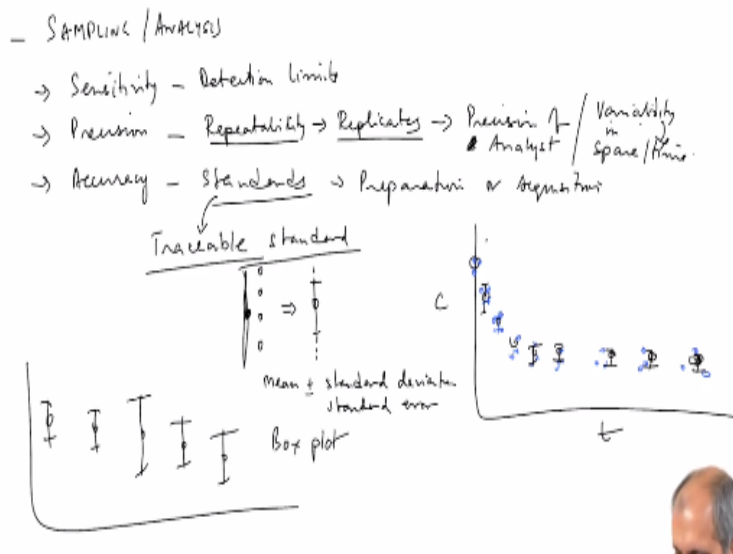 - SAMPLING / ANALYSIS
→ Sensitivity - Detection limits
→ Precision - Repeatability → Replicates → Precision of Analyst / Variability in space/time.
→ Accuracy - Standards → Preparation or
Traceable standard
mean ± standard deviation
standard error
Box plot
C
t